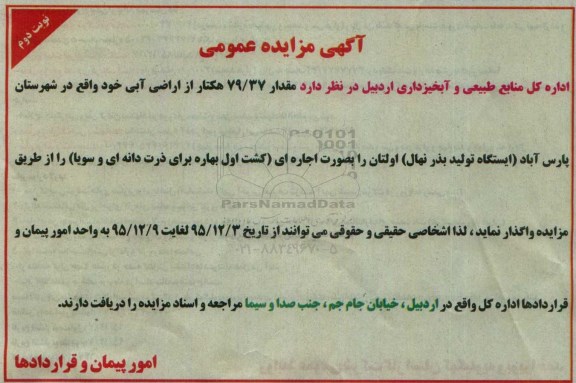 نوبت دوم
آگهی مزایده عمومی
اداره کل منابع طبیعی و آبخیزداری اردبیل در نظر دارد مقدار ۷۹/۳۷ هکتار از اراضی آبی خود واقع در شهرستان
پارس آباد (ایستگاه تولید بذر نهال) اولتان را بصورت اجاره ای (کشت اول بهاره برای ذرت دانه ای و سویا) را از طریق
ParsNamadData
مزایده واگذار نماید ، لذا اشخاصی حقیقی و حقوقی می توانند از تاریخ ۹۵/۱۲/۳ لغایت ۹۵/۱۲/۹ به واحد امور پیمان و
قراردادها اداره کل واقع در اردبیل ، خیابان جام جم ، جنب صدا و سیما مراجعه و اسناد مزایده را دریافت دارند.
امور پیمان و قراردادها